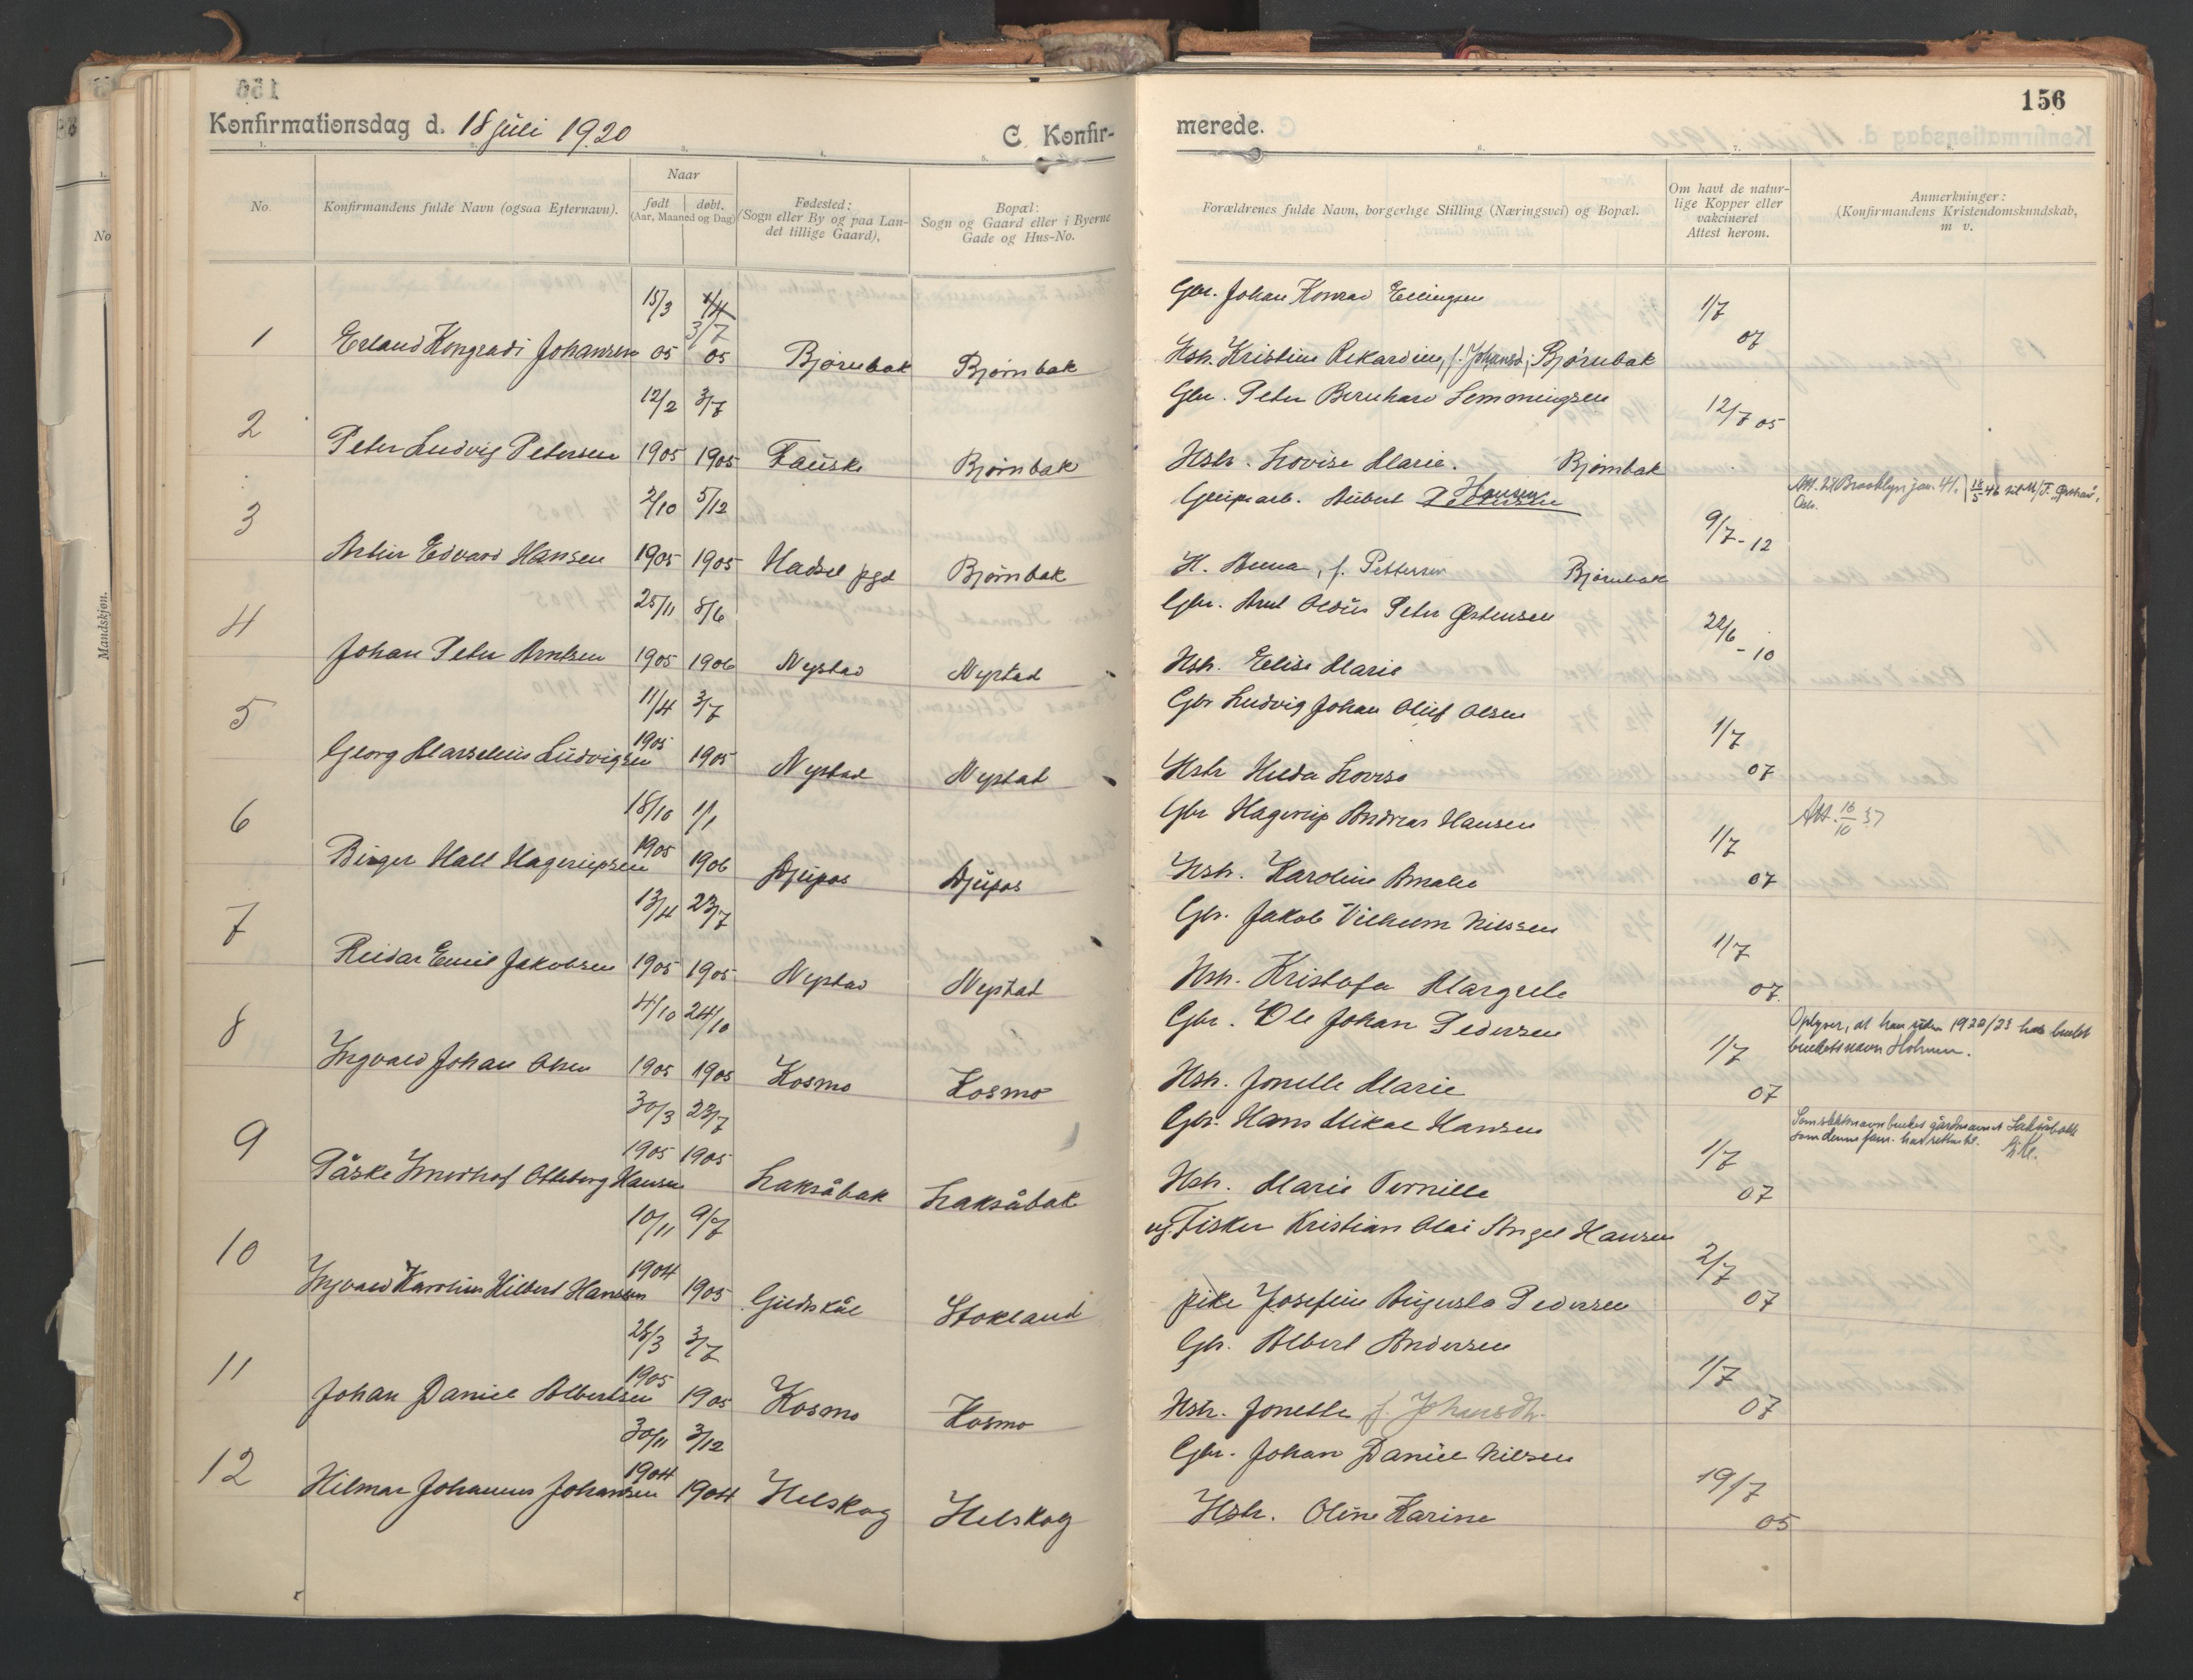 Konfirmationsdag d. 18 juli 1920
C. Konfir-
merede.
156
No.
Konfirmandens fulde Navn (ogsaa Efternavn).
Naar
født
døbt.
(Aar, Maaned og Dag)
Fødested:
(Sogn eller By og paa Lan-
det tillige Gaard),
Bopæl:
Sogn og Gaard eller i Byerne
Gade og Hus-No.
Forældrenes fulde Navn, borgerlige Stilling (Næringsvei) og Bopæl.
Om havt de natur-
lige Kopper eller
vakcineret
Attest herom.
Anmerkninger:
(Konfirmandens Kristendomskundskab,
m v.
15/3 1/4 Gbr. Johan Konrad Ellingsen 1/7
3/7
1 Erland Kongradi Johansen 05 05 Bjørnbak Bjørnbak Hstr. Kristine Rekardine, f. Johansd, Bjørnbak 07
12/2 3/7 Gbr. Peter Bernhard Lemmingsen 12/7 05
2 Peter Ludvig Petersen 1905 1905 Fauske Bjørnbak Hstr. Lovise Marie. Bjørnbak
2/10 5/12 Grubearb. Albert Pettersen Hansen 9/7-12 Att. til Brooklyn jan. 41.
3 Artur Edvard Hansen 1905 1905 Hadsel pgd Bjørnbak H. Anna, f. Pettersen Bjørnbak
25/11 8/6 Gbr. Arnt Oldus Peter Østensen 22/6-10
4 Johan Peter Arntsen 1905 1906 Nystad Nystad Hstr. Elise Marie
11/4 3/7 Gbr Ludvig Johan Oluf Olsen 1/7
5 Georg Marselius Ludvigsen 1905 1905 Nystad Nystad Hstr Hilda Lovise 07
18/10 1/1 Gbr Hagerup Andreas Hansen 1/7 Att. 16/10 37
6 Birger Hall Hagerupsen 1905 1906 Djupos Djupos Hstr. Karoline Amalie 07
13/4 23/7 Gbr. Jakob Vilhelm Nilssen 1/7
7 Reidar Emil Jakobsen 1905 1905 Nystad Nystad Hstr. Kristofa Margrete 07
4/10 24/10 Gbr. Ole Johan Pedersen 1/7 Oplyser, at han siden 1922/23 har brukt
8 Ingvald Johan Olsen 1905 1905 Kosmo Kosmo Hstr. Jonette Marie 07
30/3 23/7 Gbr. Hans Mikal Hansen 1/7 Som slektsnavn brukes gårdsnavnet Laksåbakk
som denne fam. har rett til.
9 Påske Imerhof Olleborg Hansen 1905 1905 Laksåbak Laksåbak Hstr. Marie Pernille 07
10/11 9/7 ug. Fisker Kristian Olai Angel Hansen 2/7
10 Ingvald Karolius Hilbert Hansen 1904 1905 Gildskål Stokland pike Josefine Augusta Pedersen 07
28/3 3/7 Gbr. Albert Andersen 1/7
11 Johan Daniel Albertsen 1905 1905 Kosmo Kosmo Hstr. Jonette f. Johansdtr. 07
30/11 3/12 Gbr. Johan Daniel Nilsen 19/7
12 Hilmar Johannes Johansen 1904 1904 Helskog Helskog Hstr. Oline Karine 05
Mandskjøn.